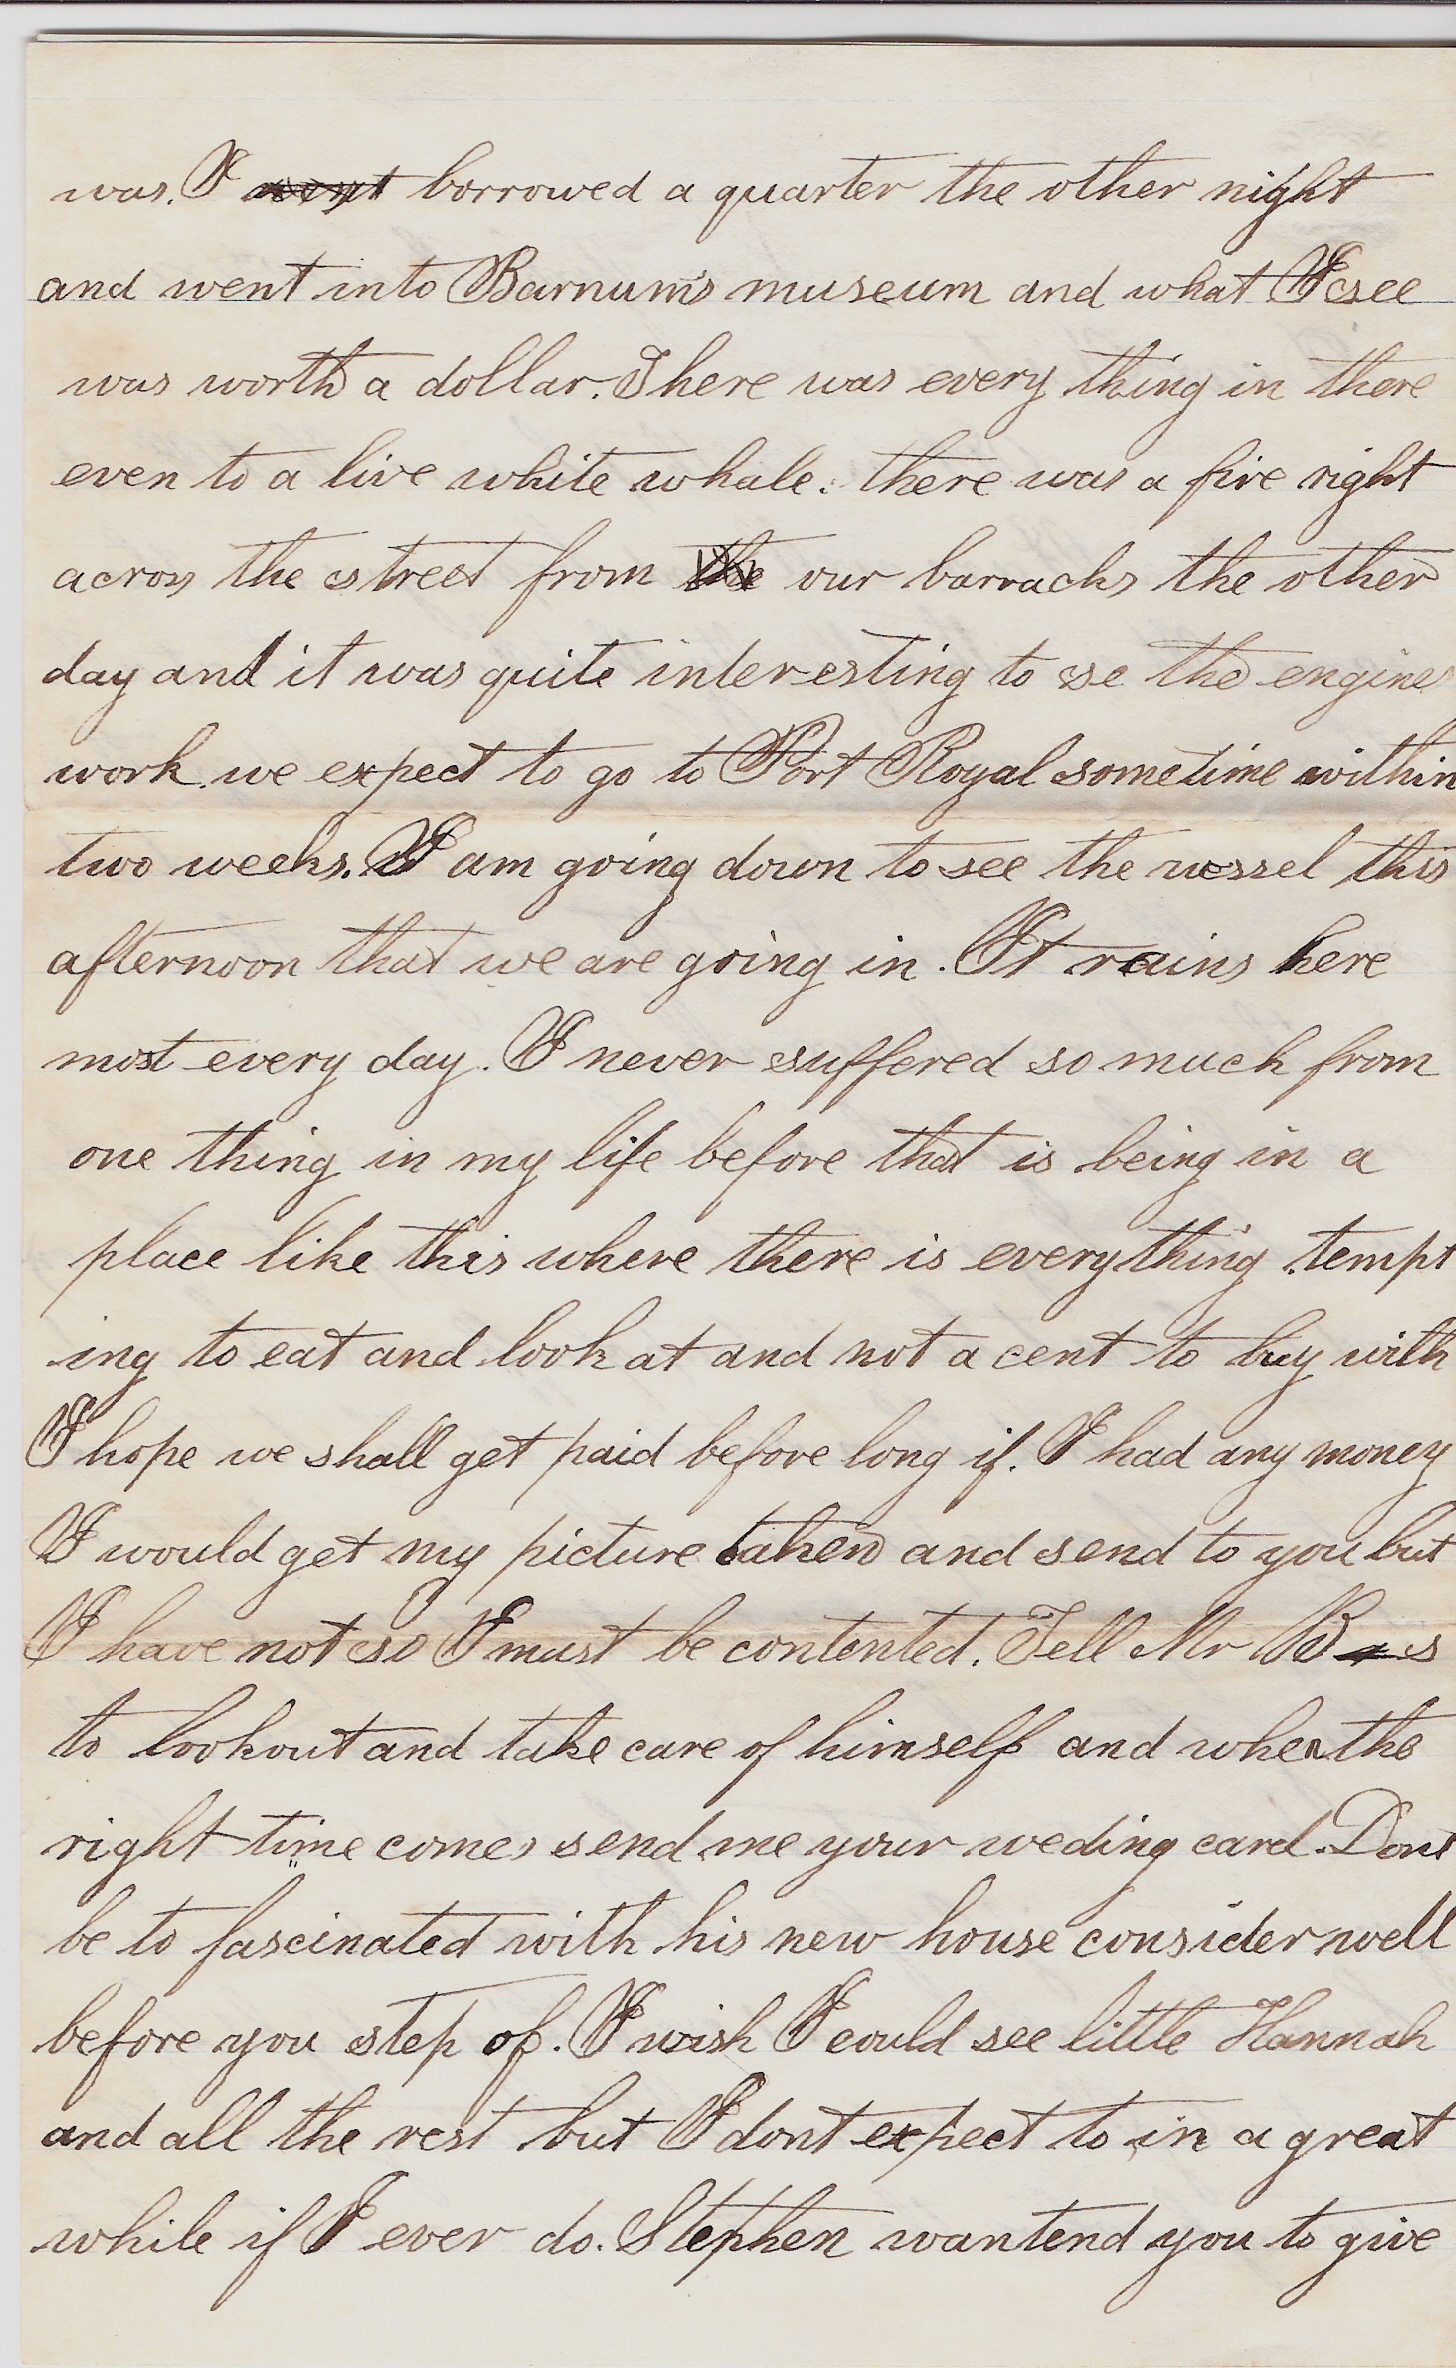 was. I went borrowed a quarter the other night
and went into Barnum's museum and what I see
was worth a dollar. There was every thing in there
even to a live white whale. there was a fire right
across the street from the our barracks the other
day and it was quite interesting to se the engines
work. we expect to go to Port Royal sometime within
two weeks. I am going down to see the vessel this
afternoon that we are going in. It rains here
most every day. I never suffered so much from
one thing in my life before that is being in a
place like this where there is everything tempt
ing to eat and look at and not a cent to buy with
I hope we shall get paid before long if. I had any money
I would get my picture taken and send to you but
I have not so I must be contented. Tell Mr B s
to lookout and take care of himself and when the
right time comes send me your weding card. Dont
be to fascinated with his new house consider well
before you step of. I wish I could see little Hannah
and all the rest but I dont expect to in a great
while if I ever do. Stephen wantend you to give